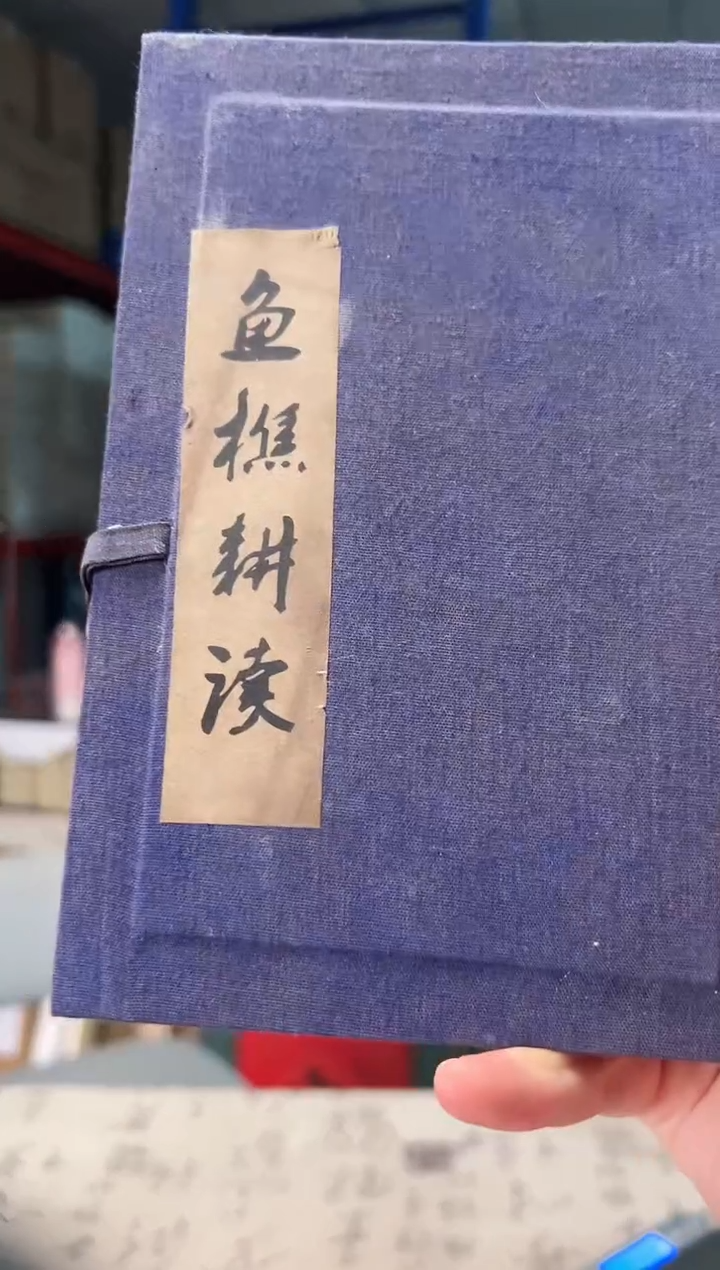 鱼樵耕读